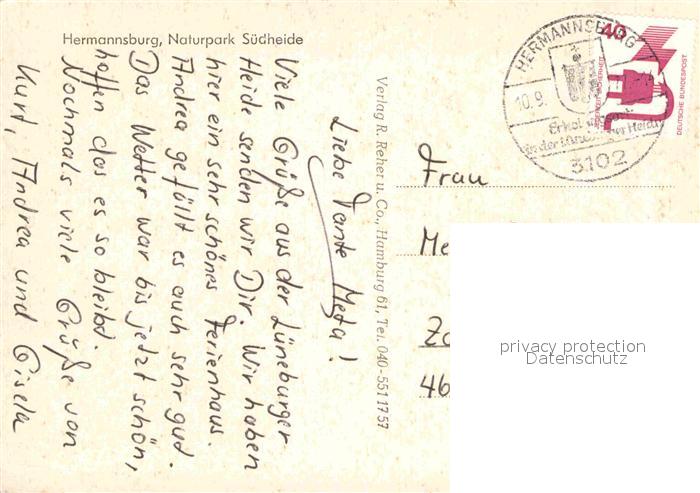 Hermannsburg, Naturpark Südheide
Liebe Tante Meta!
Viele Grüße aus der Lüneburger
Heide senden wir Dir. Wir haben
hier ein sehr schönes Ferienhaus.
Andrea gefällt es auch sehr gud.
Das Wetter war bis jetzt schön,
hoffen das es so bleibd.
Nochmals viele Grüße von
Kurt, Andrea und Gisela
Verlag R. Reher u. Co., Hamburg 61, Tel. 040-5511757
HERMANNSBURG
10.9.
3102
40
DEUTSCHE BUNDESPOST
Frau
Me
46
privacy protection
Datenschutz